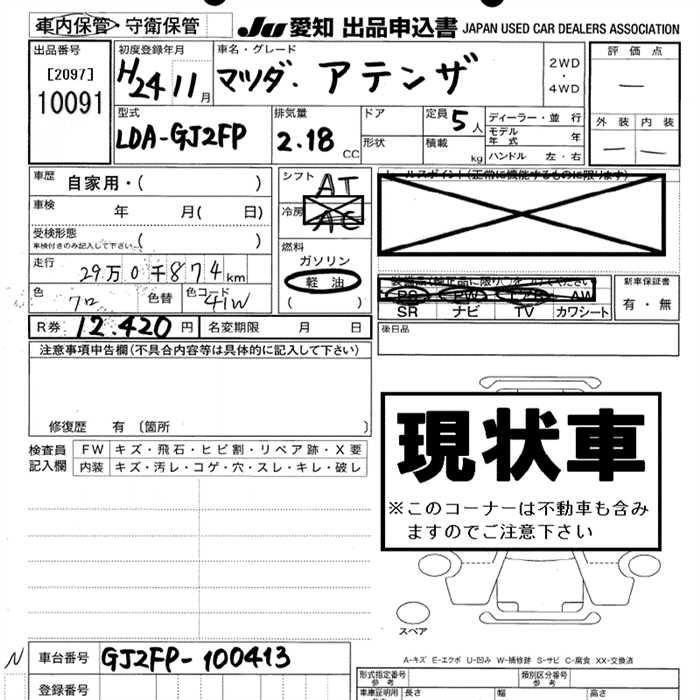 車内保管・守衛保管
JU 愛知 出品申込書 JAPAN USED CAR DEALERS ASSOCIATION
出品番号
[2097]
10091
初度登録年月
H24 11月
車名・グレード
マツダ・アテンザ
2WD
・
4WD
評価点
—
外装 内装
— —
型式
LDA-GJ2FP
排気量
2.18 CC
ドア
形状
定員 5人
積載 kg
ディーラー・並行
モデル年式 年
ハンドル 左・右
車歴 自家用・( )
車検 年 月( 日)
受検形態
車検付きのみ記入して下さい ( )
走行 29万0千874km
色 クロ 色替 色コード 41W
R券 12.420円 名変期限 月 日
シフト AT
冷房 AC
燃料
ガソリン
軽油
( )
セールスポイント(正常に機能するものに限ります)
PS PW エアB AW
SR ナビ TV カワシート
新車保証書
有・無
後日品
注意事項申告欄(不具合内容等は具体的に記入して下さい)
修復歴 有〔箇所 〕
検査員記入欄
FW キズ・飛石・ヒビ割・リペア跡・X要
内装 キズ・汚レ・コゲ・穴・スレ・キレ・破レ
現状車
※このコーナーは不動車も含み
ますのでご注意下さい
スペア
A-キズ E-エクボ U-凹み W-補修跡 S-サビ C-腐食 XX-交換済
N
車台番号 GJ2FP-100413
登録番号
形式指定番号
参考
類別区分番号
参考
車庫証明用
参考
長さ 幅 高さ